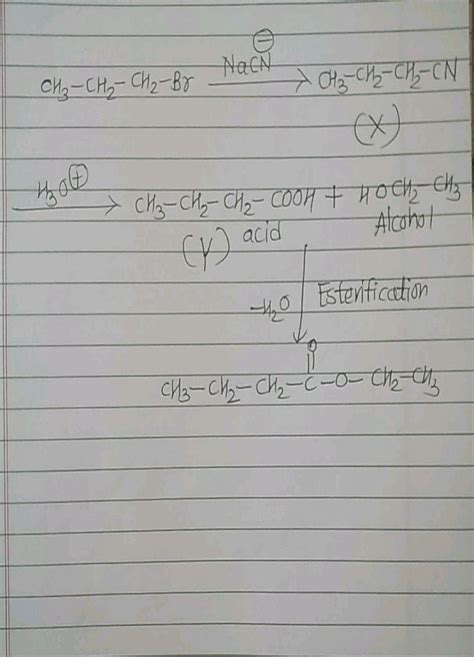 CH₃-CH₂-CH₂-Br NaCN⊖ → CH₃-CH₂-CH₂-CN
(X)
H₃O⊕ → CH₃-CH₂-CH₂-COOH + HOCH₂-CH₃
(Y) acid Alcohol
-H₂O Esterification
O
CH₃-CH₂-CH₂-C-O-CH₂-CH₃